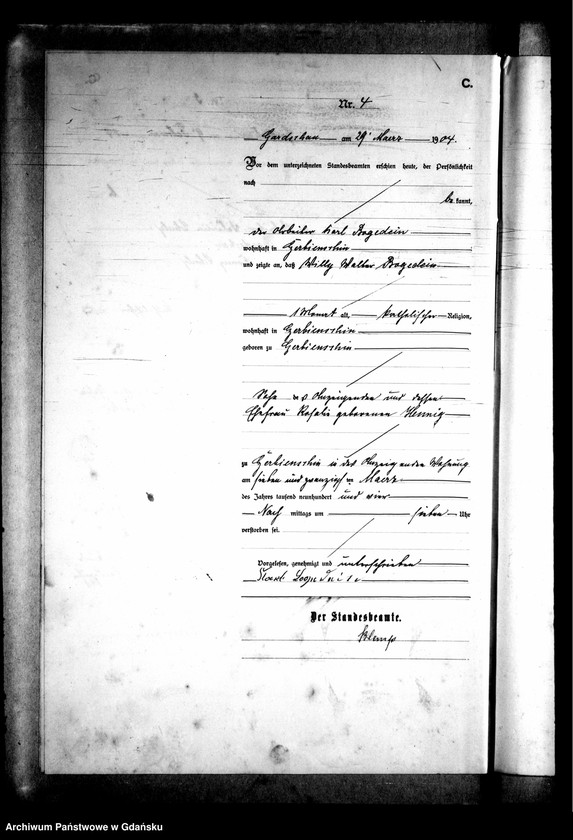 C.
Nr. 4
Gardschau am 29. Maerz 1904.
Vor dem unterzeichneten Standesbeamten erschien heute, der Persönlichkeit
nach
be kannt,
der Arbeiter Karl
wohnhaft in
und zeigte an, daß Willy Walter
1 Monat alt, katholischer Religion,
wohnhaft in
geboren zu
Sohn des Anzeigenden und dessen
Ehefrau Rosalie geborenen Hennig
zu in des Anzeigenden Wohnung
am sieben und zwanzigsten Maerz
des Jahres tausend neunhundert und vier
Nach mittags um sieben Uhr
verstorben sei.
Vorgelesen, genehmigt und unterschrieben
Der Standesbeamte.
Archiwum Państwowe w Gdańsku